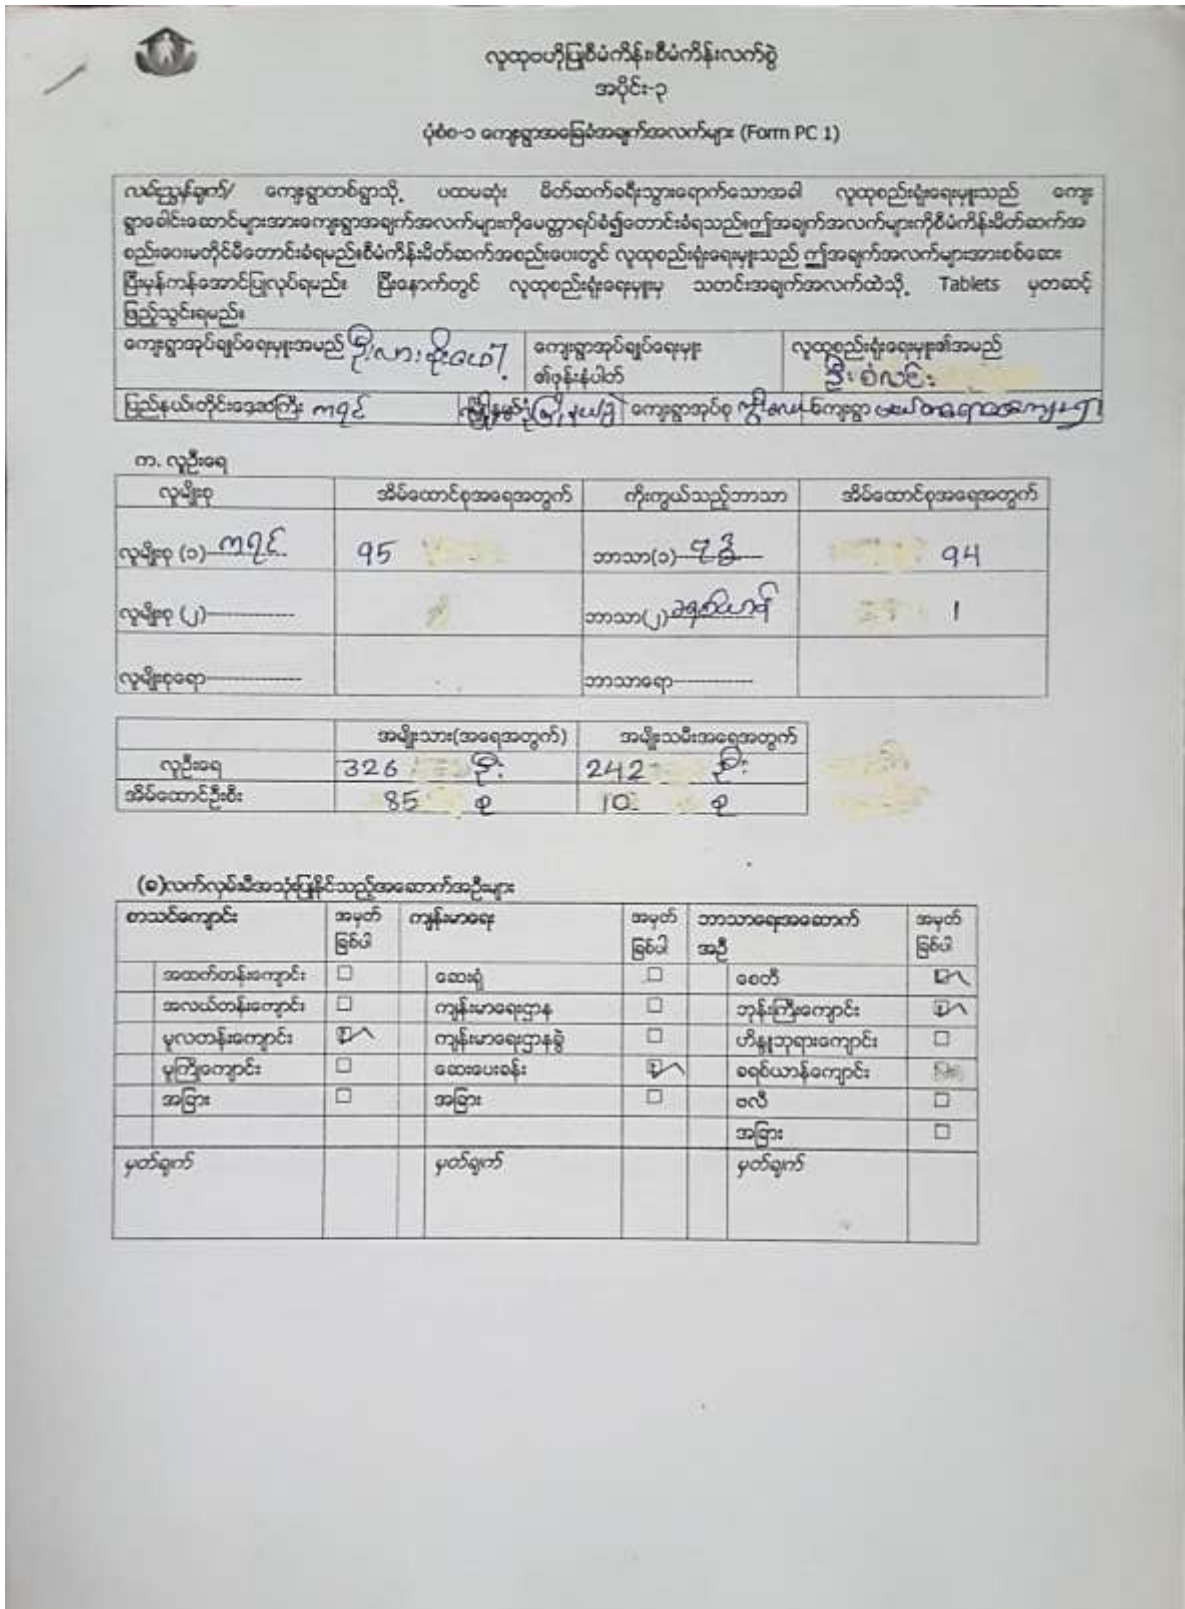 လူထုဗဟိုပြုစီမံကိန်း၊စီမံကိန်းလက်စွဲ
အပိုင်း-၃
ပုံစံစ-၁ ကျေးရွာအခြေခံအချက်အလက်များ (Form PC 1)
လမ်းညွှန်ချက်/ ကျေးရွာတစ်ရွာသို့ ပထမဆုံး မိတ်ဆက်ခရီးသွားရောက်သောအခါ လူထုစည်းရုံးရေးမှူးသည် ကျေး
ရွာခေါင်းဆောင်များအားကျေးရွာအချက်အလက်များကိုမေတ္တာရပ်ခံ၍တောင်းခံရသည်။ဤအချက်အလက်များကိုစီမံကိန်းမိတ်ဆက်အ
စည်းဝေးမတိုင်မီတောင်းခံရမည်။စီမံကိန်းမိတ်ဆက်အစည်းဝေးတွင် လူထုစည်းရုံးရေးမှူးသည် ဤအချက်အလက်များအားစစ်ဆေး
ပြီးမှန်ကန်အောင်ပြုလုပ်ရမည်။ ပြီးနောက်တွင် လူထုစည်းရုံးရေးမှူးမှ သတင်းအချက်အလက်ထဲသို့ Tablets မှတဆင့်
ဖြည့်သွင်းရမည်။
ကျေးရွာအုပ်ချုပ်ရေးမှူးအမည် ကျေးရွာအုပ်ချုပ်ရေးမှူး လူထုစည်းရုံးရေးမှူး၏အမည်
၏ဖုန်းနံပါတ်
ပြည်နယ်၊တိုင်းဒေသကြီး ကရင် ကျေးရွာအုပ်စု ကျေးရွာ
က. လူဦးရေ
လူမျိုးစု အိမ်ထောင်စုအရေအတွက် ကိုးကွယ်သည့်ဘာသာ အိမ်ထောင်စုအရေအတွက်
လူမျိုးစု (၁) ကရင် 95 ဘာသာ(၁) ဗုဒ္ဓ 94
လူမျိုးစု (၂)------------- ဘာသာ(၂) ခရစ်ယာန် 1
လူမျိုးစုရော-------------- ဘာသာရော------------
အမျိုးသား(အရေအတွက်) အမျိုးသမီးအရေအတွက်
လူဦးရေ 326 ဦး 242 ဦး
အိမ်ထောင်ဦးစီး 85 စု 10 စု
(ခ)လက်လှမ်းမီအသုံးပြုနိုင်သည့်အဆောက်အဦးများ
စာသင်ကျောင်း အမှတ် ကျန်းမာရေး အမှတ် ဘာသာရေးအဆောက် အမှတ်
ခြစ်ပါ ခြစ်ပါ အဦ ခြစ်ပါ
အထက်တန်းကျောင်း ☐ ဆေးရုံ ☐ စေတီ ☑
အလယ်တန်းကျောင်း ☐ ကျန်းမာရေးဌာန ☐ ဘုန်းကြီးကျောင်း ☑
မူလတန်းကျောင်း ☑ ကျန်းမာရေးဌာနခွဲ ☐ ဟိန္ဒူဘုရားကျောင်း ☐
မူကြိုကျောင်း ☐ ဆေးပေးခန်း ☑ ခရစ်ယာန်ကျောင်း
အခြား ☐ အခြား ☐ ဗလီ ☐
အခြား ☐
မှတ်ချက် မှတ်ချက် မှတ်ချက်